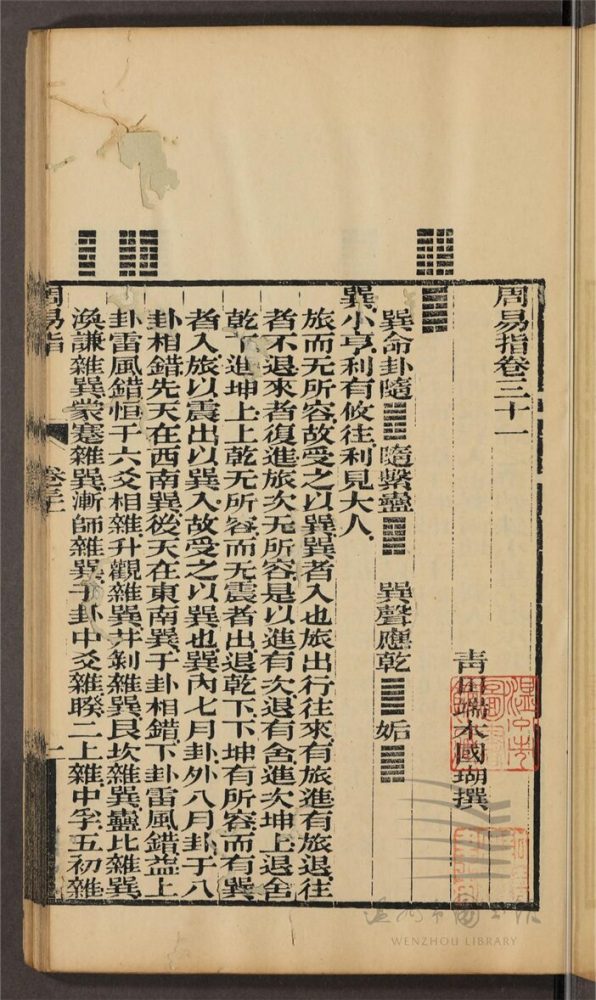 周易指卷三十一
青田端木國瑚撰
巽命卦隨䷐隨繫蠱䷑ 巽聲應乾䷀姤䷫
巽小亨利有攸往利見大人
旅而无所容故受之以巽巽者入也旅出行往來有旅進有旅退往
者不退來者復進旅次无所容是以進有次退有舍進次坤上退舍
乾下進坤上上乾无所容而无震者出退乾下下坤有所容而有巽
者入旅以震出以巽入故受之以巽也巽內七月卦外八月卦于八
卦相錯先天在西南巽後天在東南巽于卦相錯下卦雷風錯益上
卦雷風錯恒于六爻相雜升觀雜巽井剝雜巽艮坎雜巽蠱比雜巽
渙謙雜巽蒙蹇雜巽漸師雜巽于卦中爻雜睽二上雜中孚五初雜
周易指
卷三十一
一
WENZHOU LIBRARY